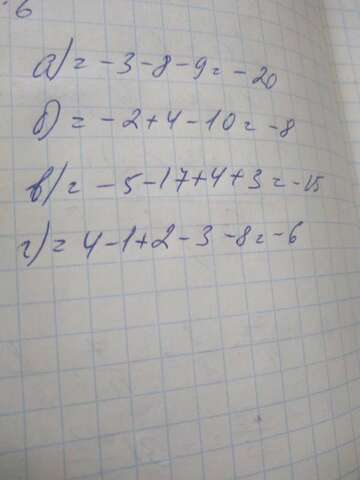 6
а) = -3-8-9 = -20
б) = -2+4-10 = -8
в) = -5-17+4+3 = -15
г) = 4-1+2-3-8 = -6